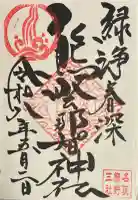 緑浄春深
熊野那智神社
令和六年五月一日